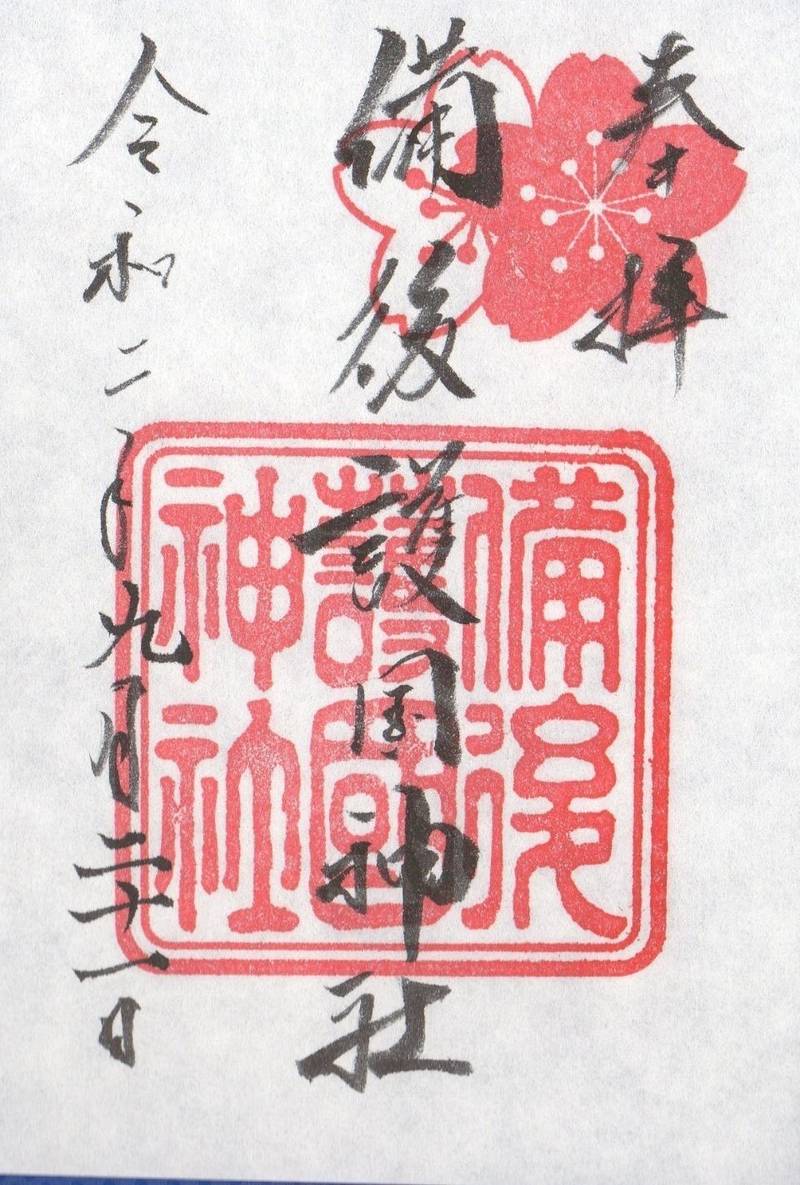 奉拝
備後護国神社
備後
護國
神社
令和二年九月二十一日